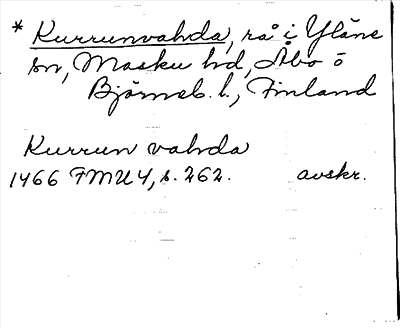 * Kurrunvahda, rå i Yläne
sn, Masku hd, Åbo o
Björneb. l., Finland
Kurrun vahda
1466 FMU 4, s. 262. avskr.